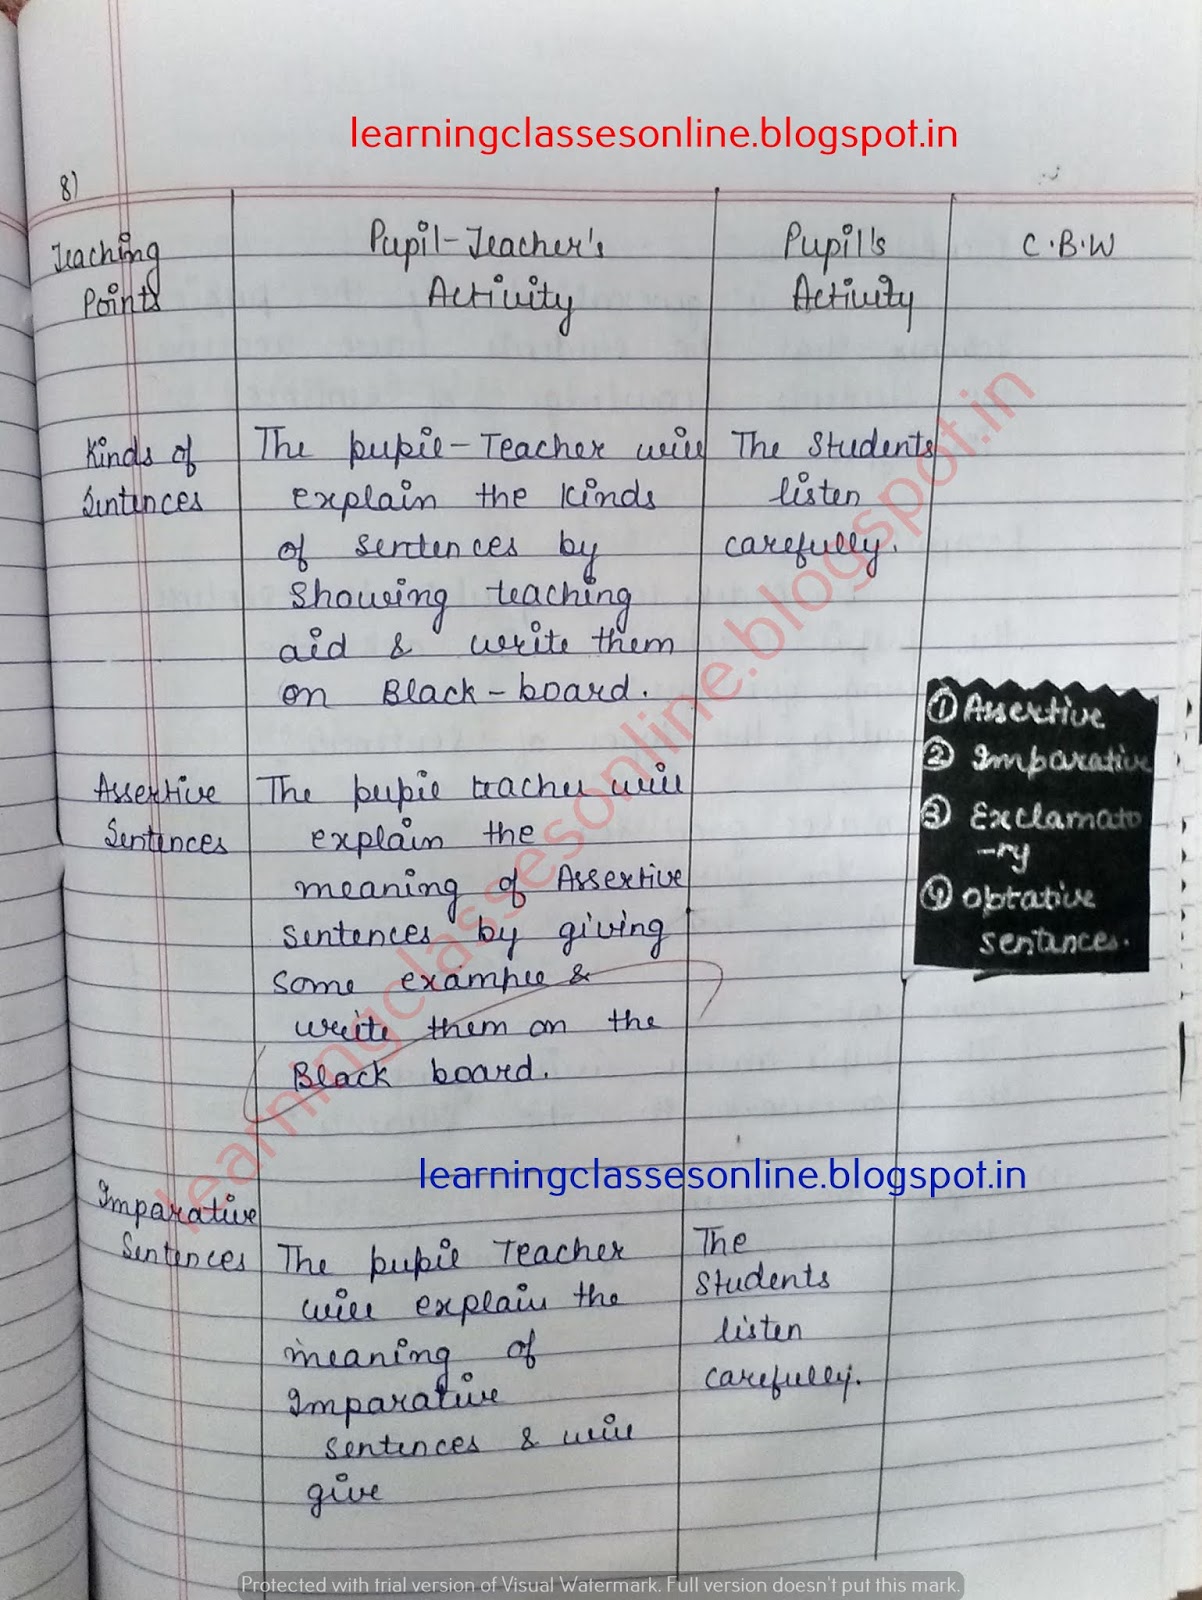 learningclassesonline.blogspot.in
8)
Teaching
Points
Pupil-Teacher's
Activity
Pupil's
Activity
C.B.W
Kinds of
Sentences
The pupil-Teacher will
explain the kinds
of sentences by
Showing teaching
aid & write them
on Black-board.
The Students
listen
carefully.
① Assertive
② Imparative
③ Exclamato
-ry
④ Optative
sentances.
Assertive
Sentences
The pupil teacher will
explain the
meaning of Assertive
Sentences by giving
some example &
write them on the
Black board.
learningclassesonline.blogspot.in
learningclassesonline.blogspot.in
Imparative
Sentences
The pupil Teacher
will explain the
meaning of
Imparative
sentences & will
give
The
Students
listen
carefully.
Protected with trial version of Visual Watermark. Full version doesn't put this mark.